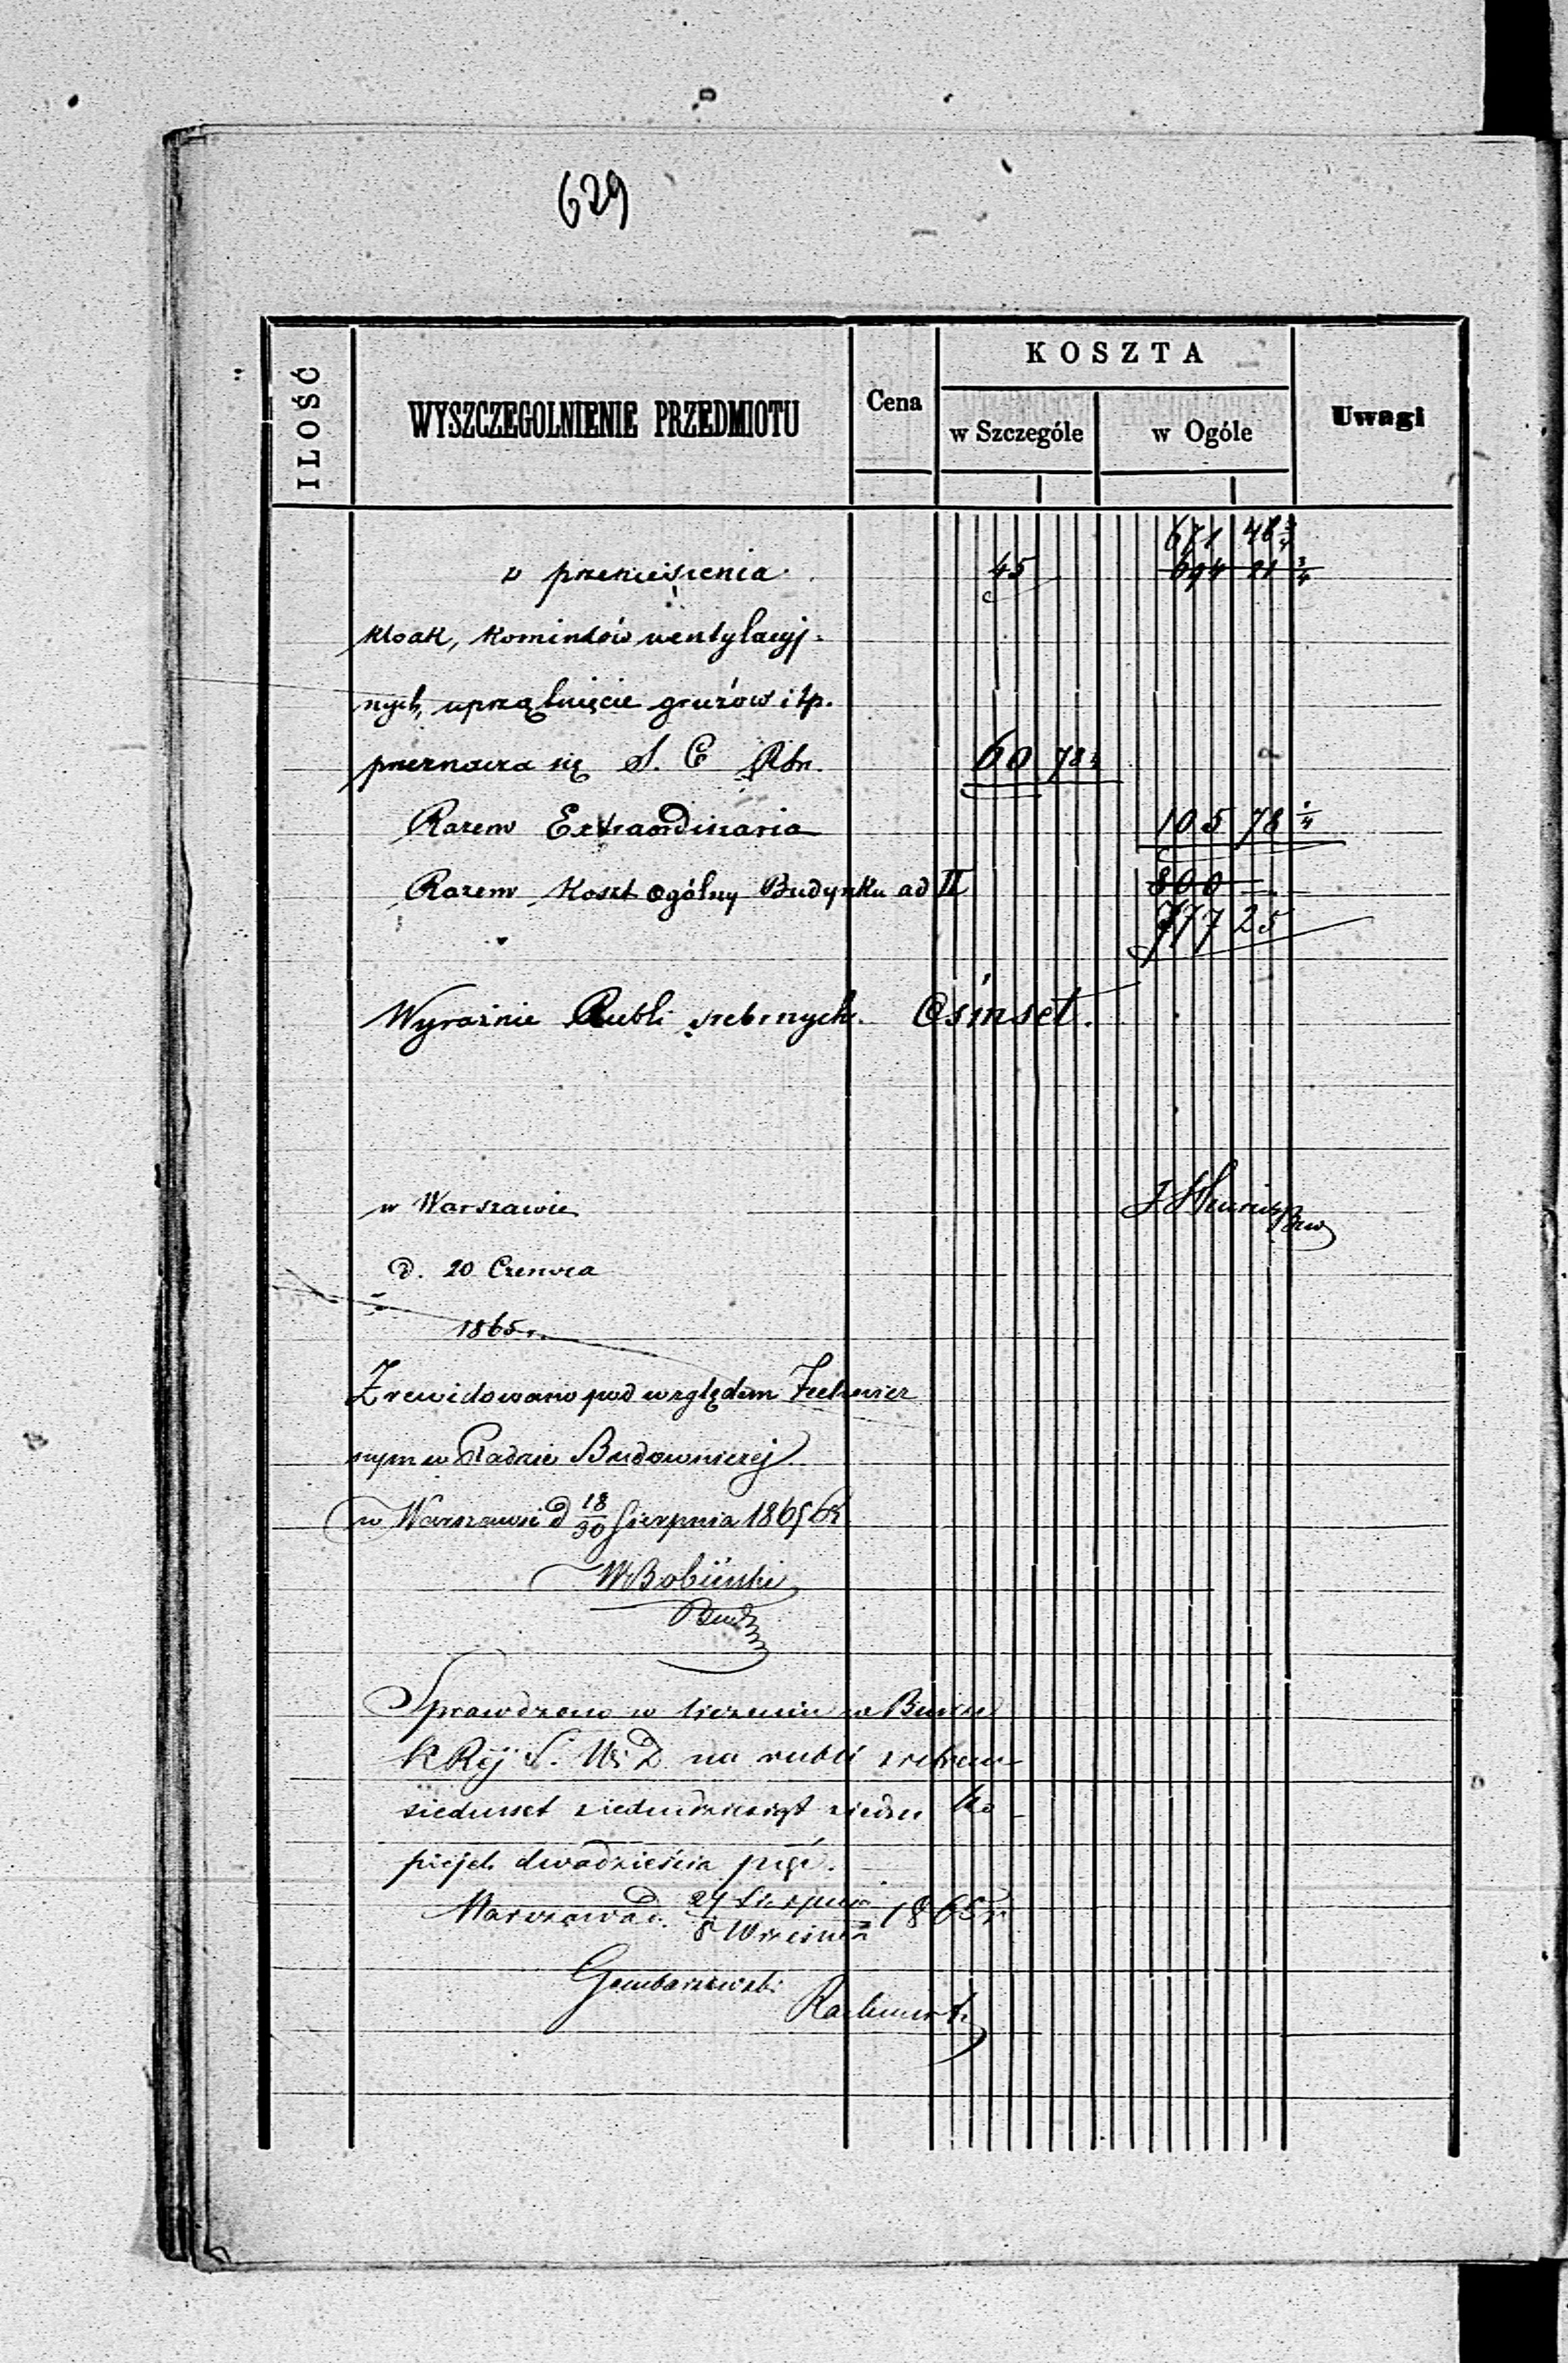 629
ILOŚĆ
WYSZCZEGOLNIENIE PRZEDMIOTU
Cena
KOSZTA
w Szczególe
w Ogóle
Uwagi
671 46 3/4
z przeniesienia 45 694 21 3/4
kloak, kominków wentylacyj-
nych, uprzątnięcie gruzów itp.
przeznacza się S. C Rbr. 60 78 1/4
Razem Extraordinaria 105 78 1/4
Razem Koszt ogólny Budynku ad II 800 —
777 25
Wyraźnie Rubli srebrnych. Ośmset.
w Warszawie
d. 20 Czerwca
1865 r.
Zrewidowano pod względem Technicz
nym w Radzie Budowniczej
w Warszawie d 18/30 Sierpnia 1865 r.
W Bobiński
Bud
Sprawdzono w liczeniu w Biurze
K Rej S. W. i D. na rubli srebrem
siedmset siedmdziesiąt siedm ko
piejek dwadzieścia pięć.
Warszawa d. 27 Sierpnia / 8 Września 1865 r
Gembarzewski
Rachmistrz